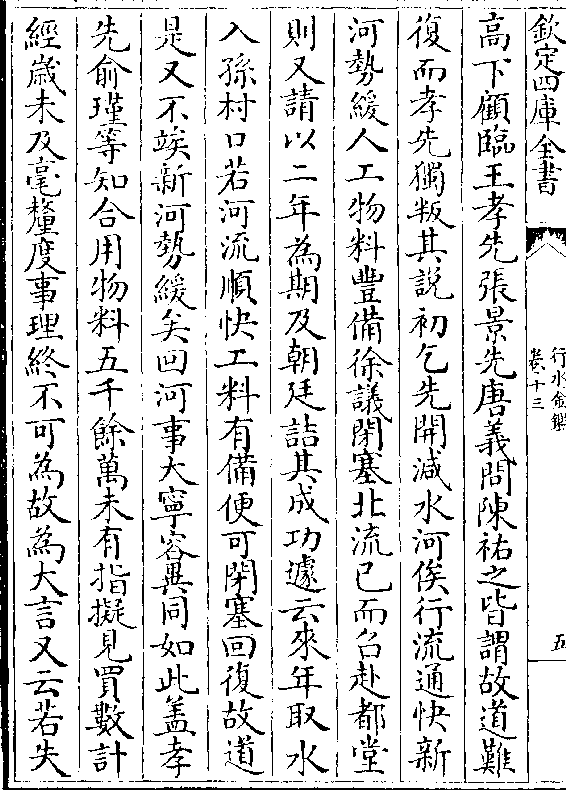 欽定四庫全書
行水金鑑
卷十三
五
高下顧臨王孝先張景先唐義問陳祐之皆謂故道難
復而孝先獨叛其說初乞先開減水河俟行流通快新
河勢緩人工物料豐備徐議閉塞北流已而召赴都堂
則又請以二年為期及朝廷詰其成功遽云來年取水
入孫村口若河流順快工料有備便可閉塞回復故道
是又不竢新河勢緩矣回河事大寧容異同如此盖孝
先俞瑾等知合用物料五千餘萬未有指擬見買數計
經歲未及毫釐度事理終不可為故為大言又云若失